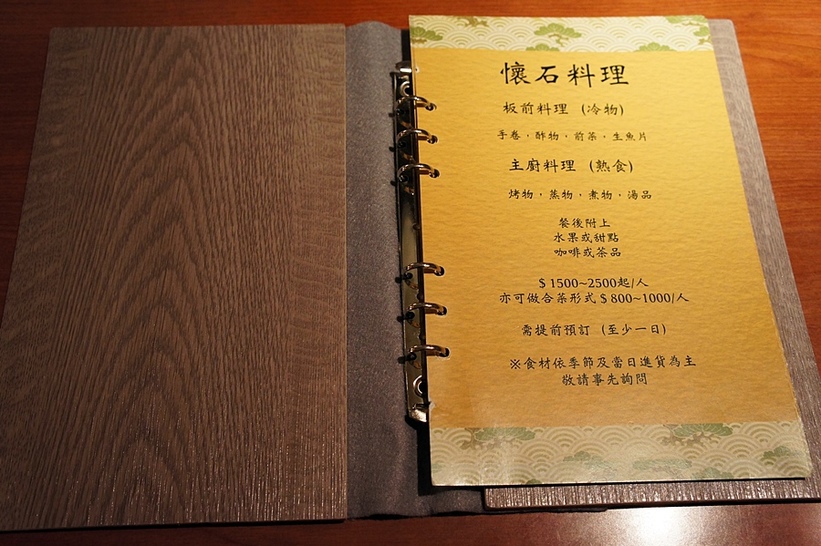 懷石料理
板前料理 (冷物)
手卷，酢物，前菜，生魚片
主廚料理 (熟食)
烤物，蒸物，煮物，湯品
餐後附上
水果或甜點
咖啡或茶品
$1500~2500起/人
亦可做合菜形式$800~1000/人
需提前預訂 (至少一日)
※食材依季節及當日進貨為主
敬請事先詢問